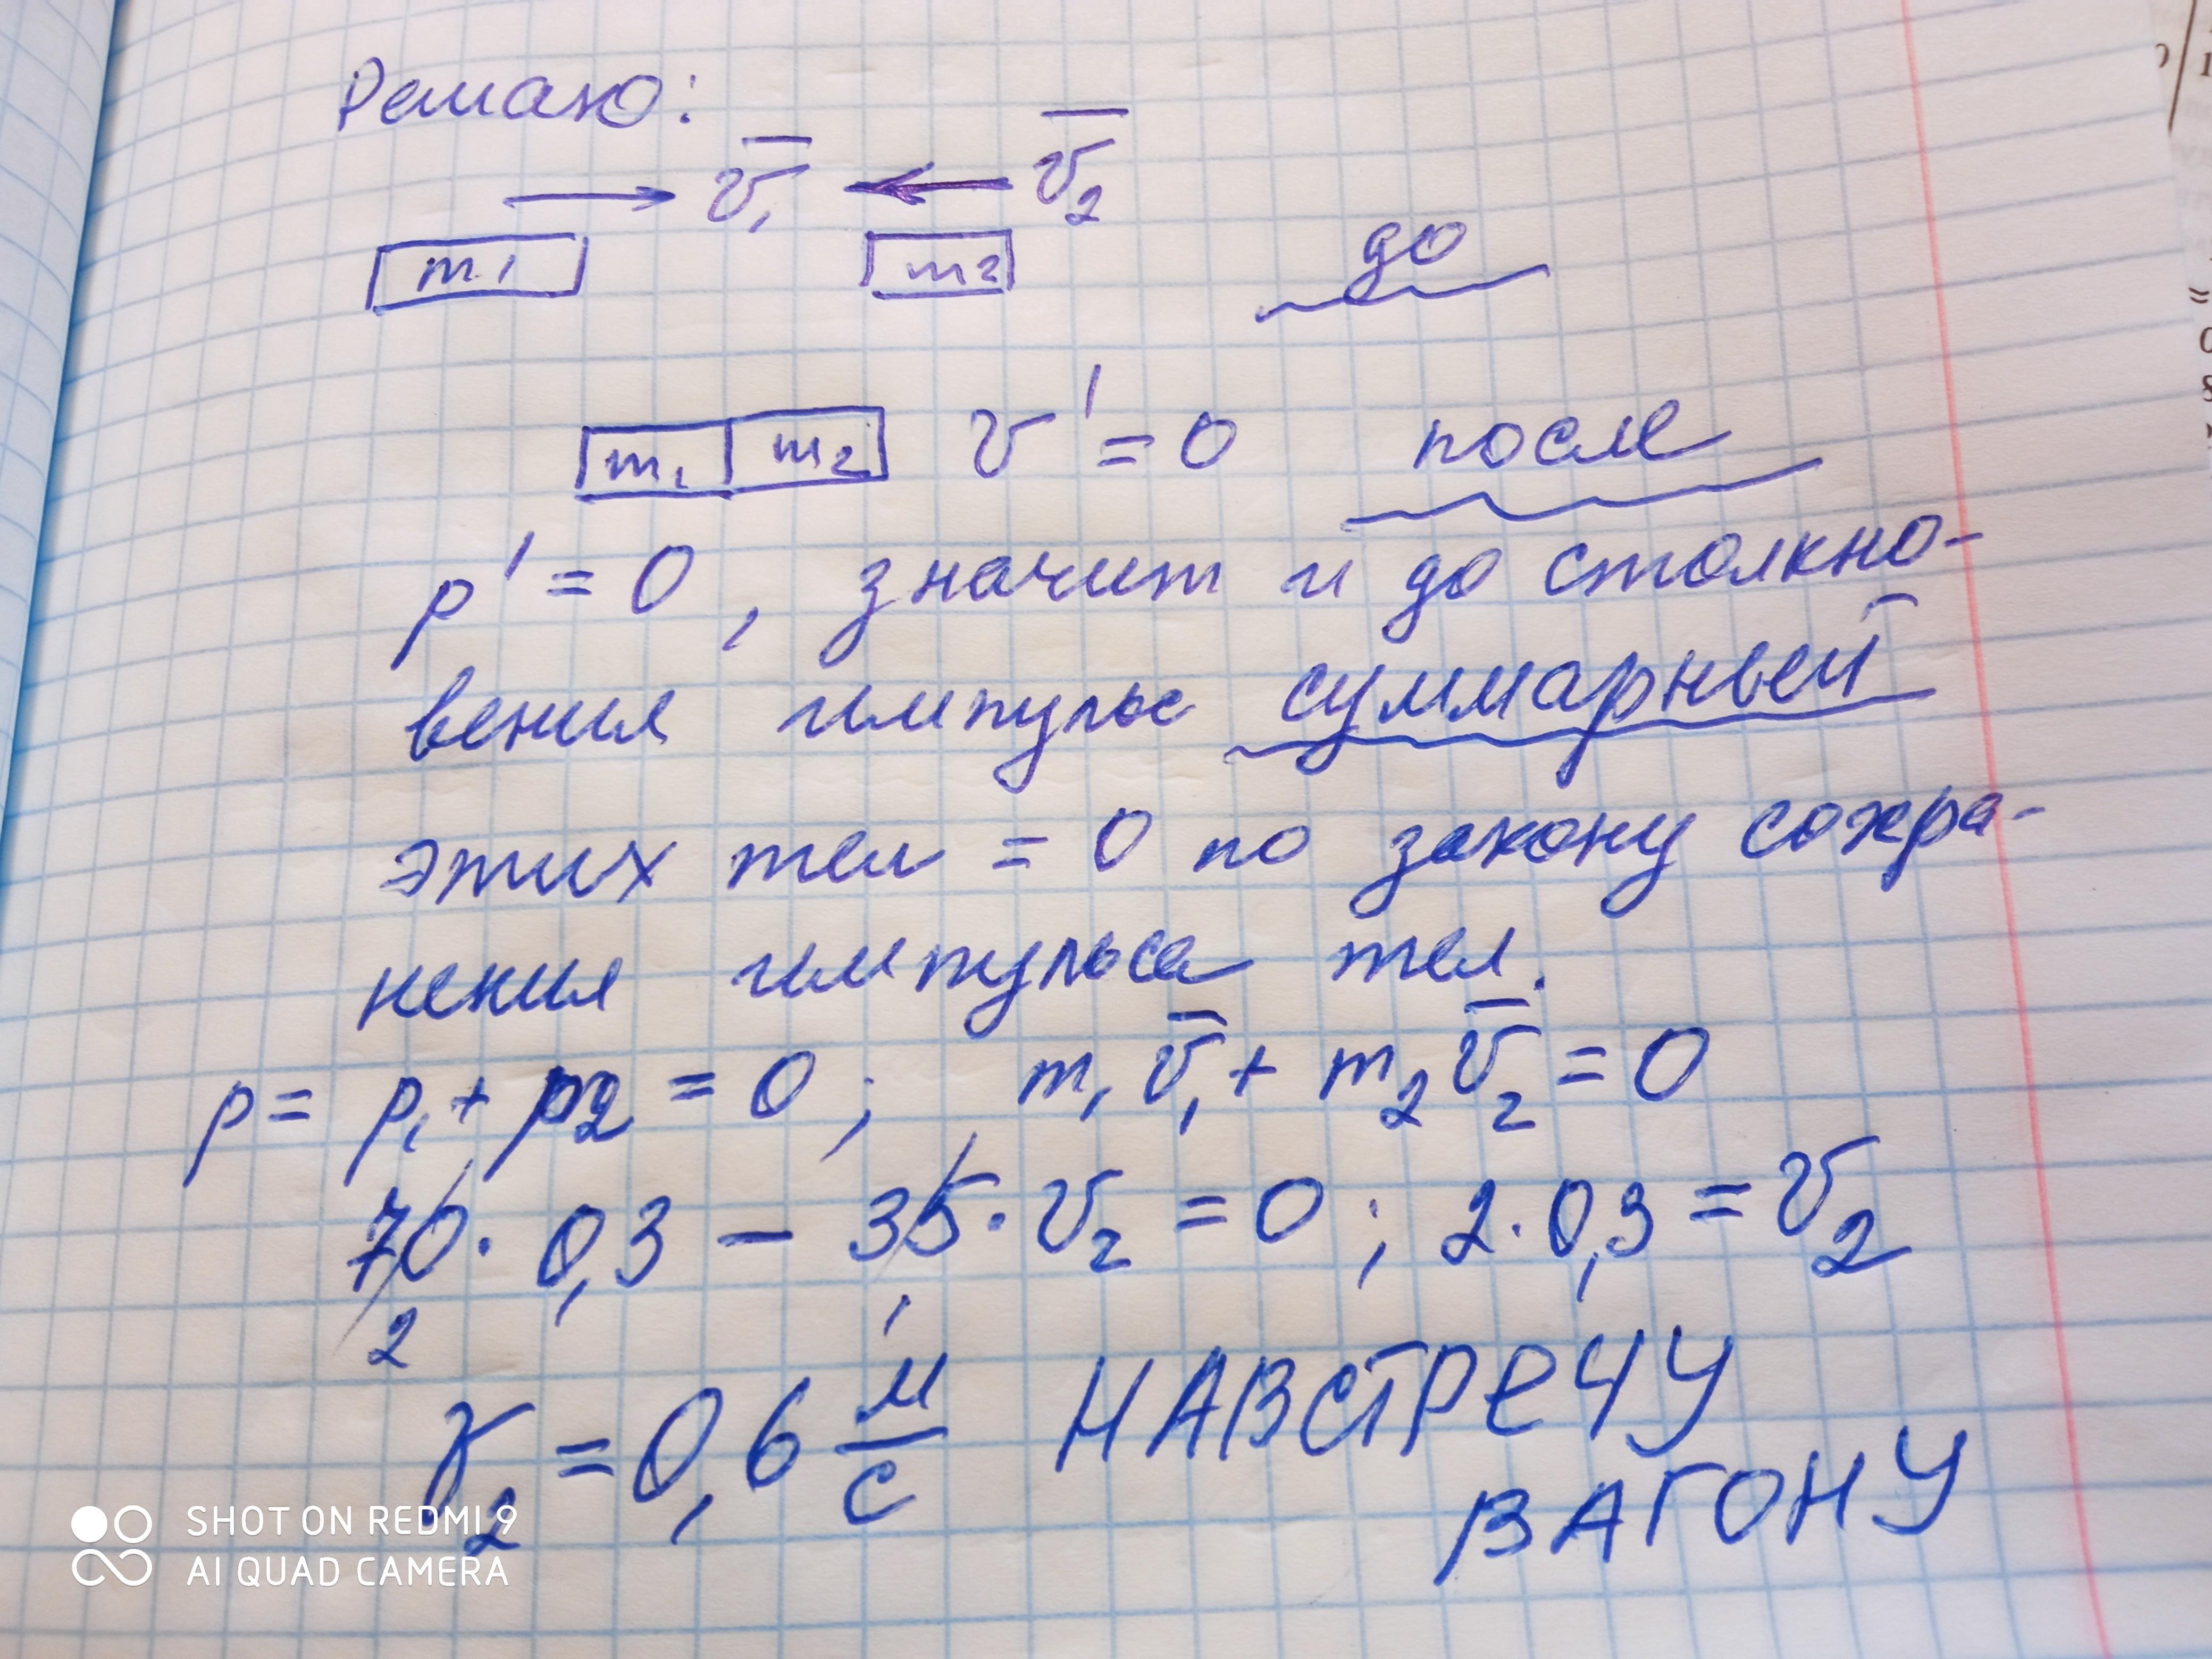 Решаю:
v̅₁ v̅₂
m₁ m₂ до
m₁ m₂ v' = 0 после
p' = 0, значит и до столкно-
вения импульс суммарный
этих тел = 0 по закону сохра-
нения импульса тел.
p = p₁ + p₂ = 0; m₁v̅₁ + m₂v̅₂ = 0
70 · 0,3 − 35 · v₂ = 0; 2 · 0,3 = v₂
2 1
v₂ = 0,6 м/с НАВСТРЕЧУ
ВАГОНУ
SHOT ON REDMI 9
AI QUAD CAMERA